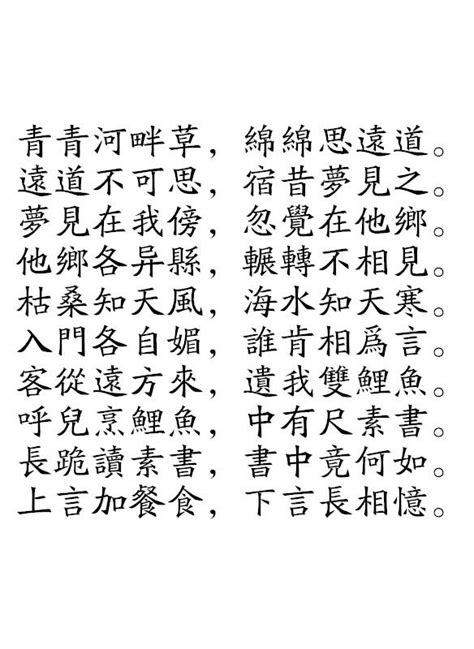 青青河畔草，綿綿思遠道。
遠道不可思，宿昔夢見之。
夢見在我傍，忽覺在他鄉。
他鄉各异縣，輾轉不相見。
枯桑知天風，海水知天寒。
入門各自媚，誰肯相爲言。
客從遠方來，遺我雙鯉魚。
呼兒烹鯉魚，中有尺素書。
長跪讀素書，書中竟何如。
上言加餐食，下言長相憶。